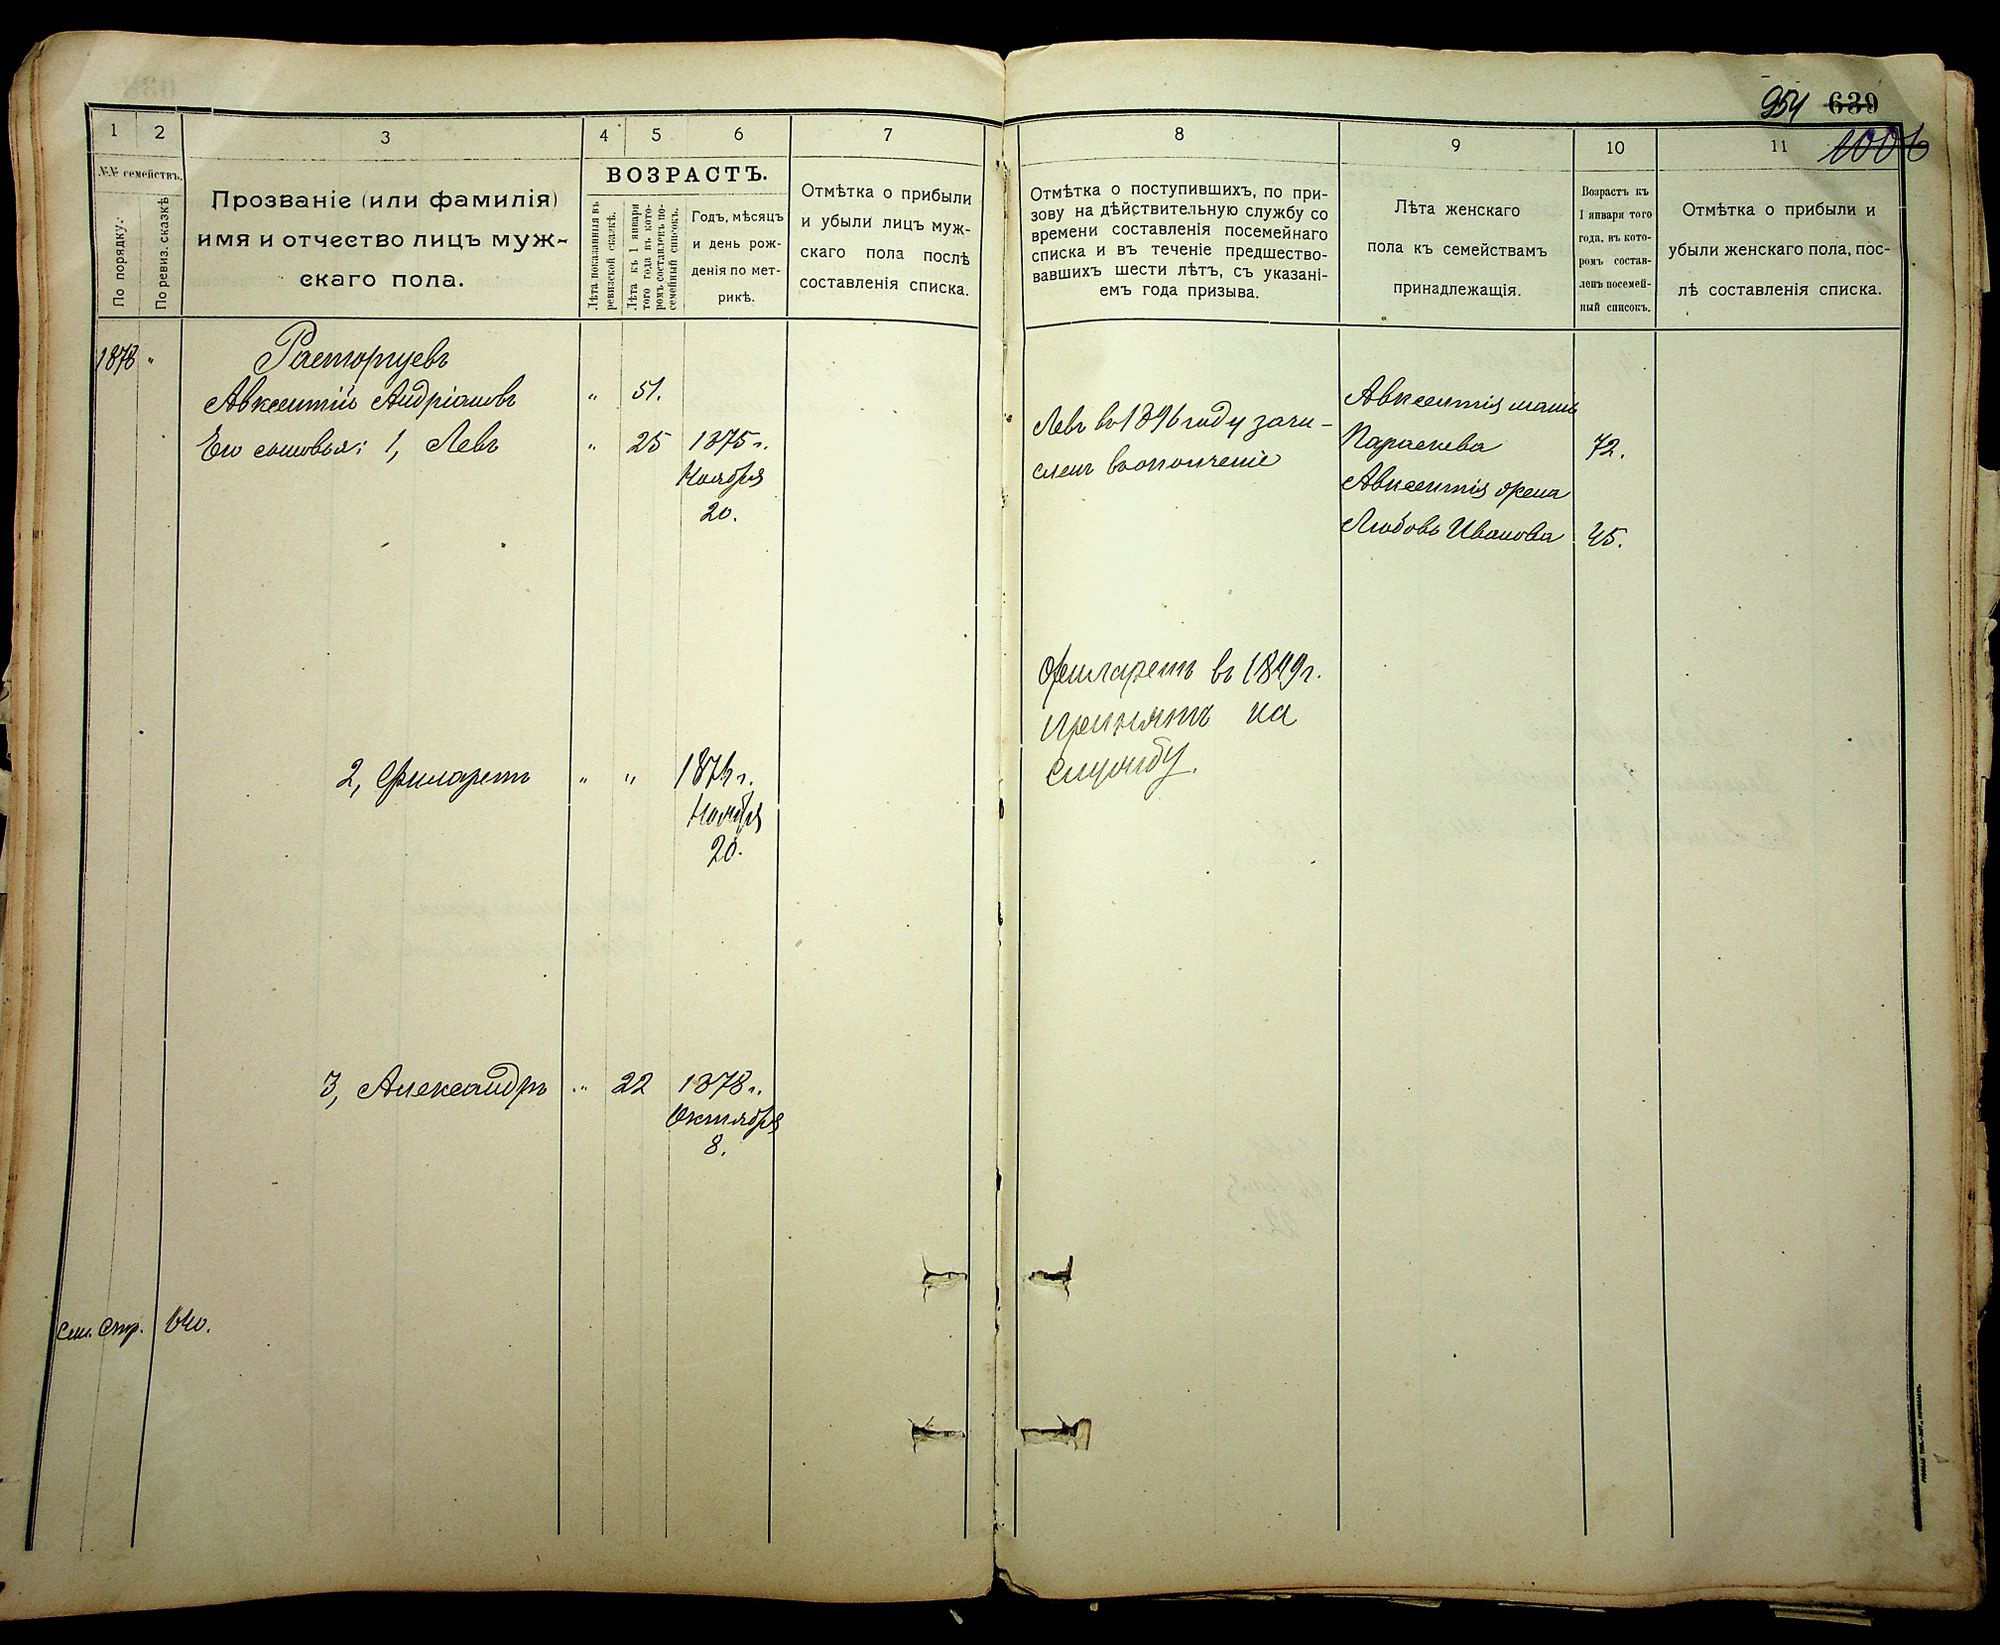 954 639
1006
1 2 3 4 5 6 7
№№ семействъ.
По порядку.
По ревиз. сказкѣ
Прозваніе (или фамилія)
имя и отчество лицъ муж-
скаго пола.
ВОЗРАСТЪ.
Лѣта показанныя въ
ревизской сказкѣ.
Лѣта къ 1 января
того года въ кото-
ромъ составленъ по-
семейный списокъ.
Годъ, мѣсяцъ
и день рож-
денія по мет-
рикѣ.
Отмѣтка о прибыли
и убыли лицъ муж-
скаго пола послѣ
составленія списка.
1878 "
Расторгуевъ
Авксентій Андріановъ " 51.
Его сыновья: 1, Левъ " 25 1875 г.
Ноября
20.
2, Филаретъ " " 1874 г.
Ноября
20.
3, Александръ " 22 1878 г.
Октября
8.
См. стр. 640.
8 9 10 11
Отмѣтка о поступившихъ, по при-
зову на дѣйствительную службу со
времени составленія посемейнаго
списка и въ теченіе предшество-
вавшихъ шести лѣтъ, съ указані-
емъ года призыва.
Лѣта женскаго
пола къ семействамъ
принадлежащія.
Возрастъ къ
1 января того
года, въ кото-
ромъ состав-
ленъ посемей-
ный списокъ.
Отмѣтка о прибыли и
убыли женскаго пола, пос-
лѣ составленія списка.
Левъ въ 1896 году зачи-
сленъ въ ополченіе
Филаретъ въ 1899 г.
принятъ на
службу.
Авксентія мать
Параскева 72.
Авксентія жена
Любовь Иванова 45.